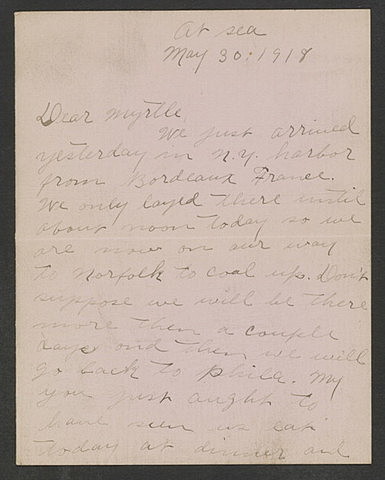 At sea
May 30:1918
Dear Myrtle
We just arrived
yesterday in N.Y. harbor
from Bordeaux France.
We only layed there until
about noon today so we
are now on our way
to Norfolk to coal up. Don't
suppose we will be there
more then a couple
days and then we will
go back to Phila. My
you just aught to
have seen us eat
today at dinner and